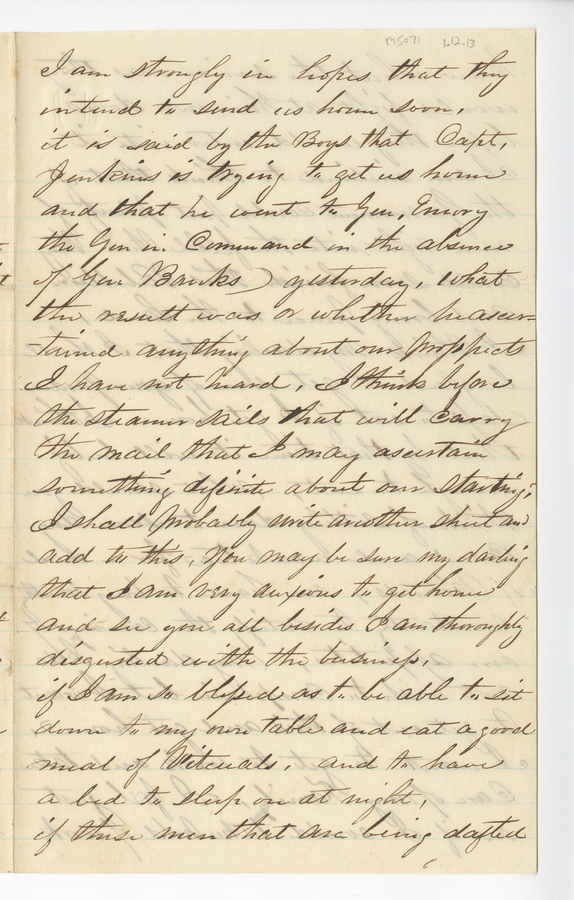 M5071 1.12.13
I am strongly in hopes that they
intend to send us home soon,
it is said by the Boys that Capt,
Jenkins is trying to get us home
and that he went to Gen, Emory
the Gen in Command in the absence
of Gen Banks) yesterday, what
the result was or whether he ascer=
-tained anything about our prospects
I have not heard, I think before
the steamer sails that will carry
the mail that I may ascertain
something difinite about our starting,
I shall probably write another sheet and
add to this, you may be sure my darling
that I am very anxious to get home
and see you all besides I am thoroughly
disgusted with the business,
if I am so blessed as to be able to sit
down to my own table and eat a good
meal of Vitcuals, and to have
a bed to sleep on at night,
if these men that are being dafted